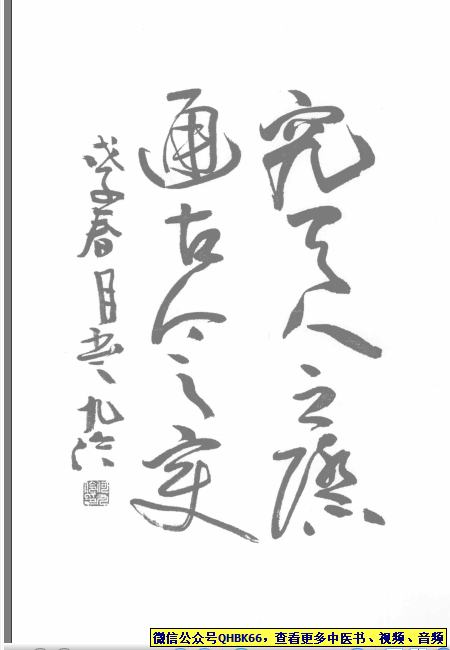 究天人之际
通古今之变
戊子春月书 九冶
微信公众号QHBK66，查看更多中医书、视频、音频